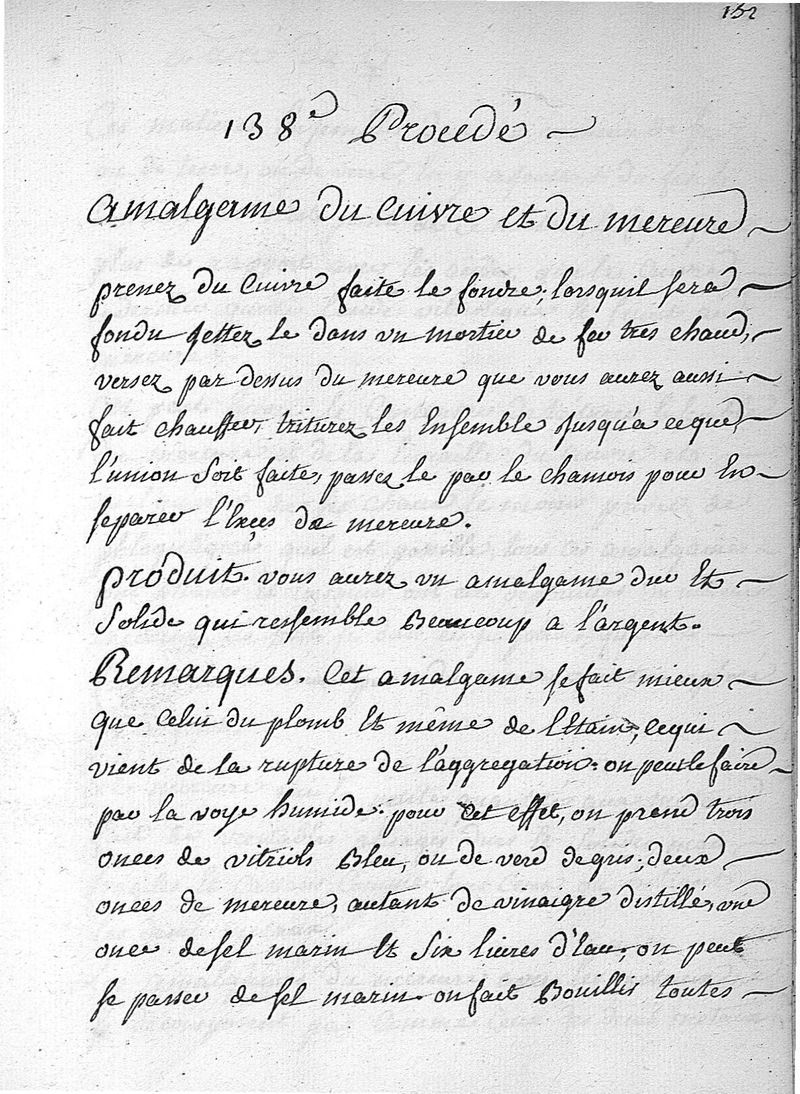 152
138e Procedé
amalgame du Cuivre et du mercure
prenez du Cuivre faite le fondre; lorsquil sera
fondu jettez le dans un mortier de fer tres chaud,
versez par dessus du mercure que vous aurez aussi
fait chauffer, triturez les Ensemble jusqu'a ceque
l'union soit faite, passez le par le chamois pour En
separer l'Exces de mercure.
produit. vous aurez un amalgame dur Et
Solide qui ressemble Beaucoup a l'argent.
Remarques. Cet amalgame se fait mieux
que Celui du plomb Et même de l'Etain, cequi
vient de la rupture de l'aggregation. on peut le faire
par la voye humide. pour cet effet, on prend trois
onces de vitriols Bleu, ou de verd degris; deux
onces de mercure, autant de vinaigre distillé, une
once de sel marin Et Six livres d'Eau, on peut
se passer de sel marin. on fait Bouillir toutes